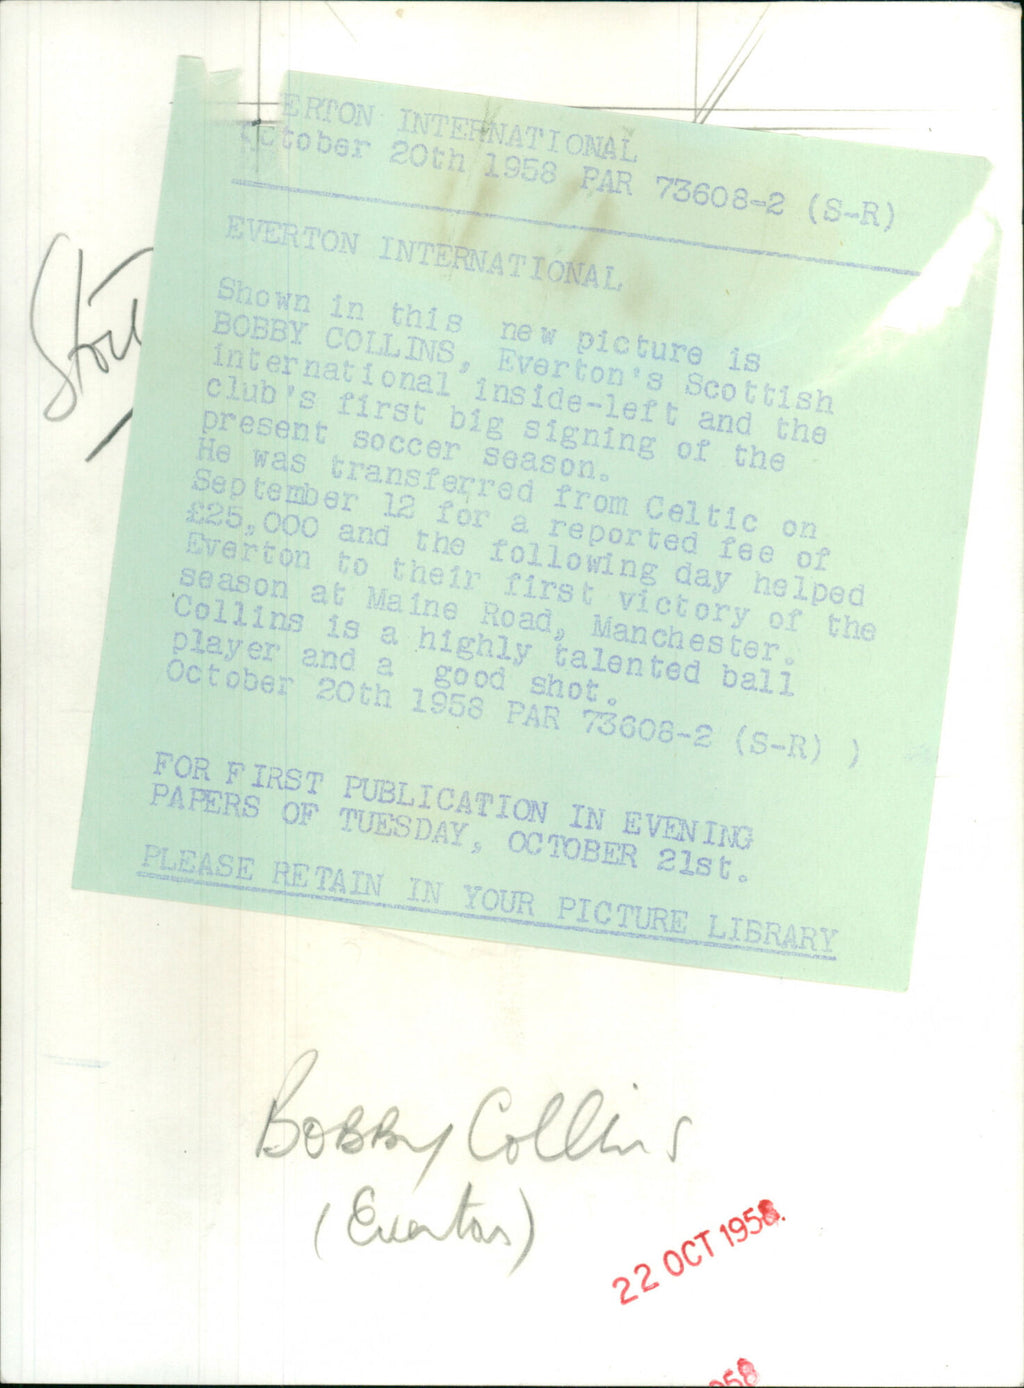 ERTON INTERNATIONAL
October 20th 1958 PAR 73608-2 (S-R)
EVERTON INTERNATIONAL
Shown in this new picture is
BOBBY COLLINS, Everton's Scottish
international inside-left and the
club's first big signing of the
present soccer season.
He was transferred from Celtic on
September 12 for a reported fee of
£25,000 and the following day helped
Everton to their first victory of the
season at Maine Road, Manchester.
Collins is a highly talented ball
player and a good shot.
October 20th 1958 PAR 73608-2 (S-R) )
FOR FIRST PUBLICATION IN EVENING
PAPERS OF TUESDAY, OCTOBER 21st.
PLEASE RETAIN IN YOUR PICTURE LIBRARY
Bobby Collins
(Everton)
22 OCT 1958.
958